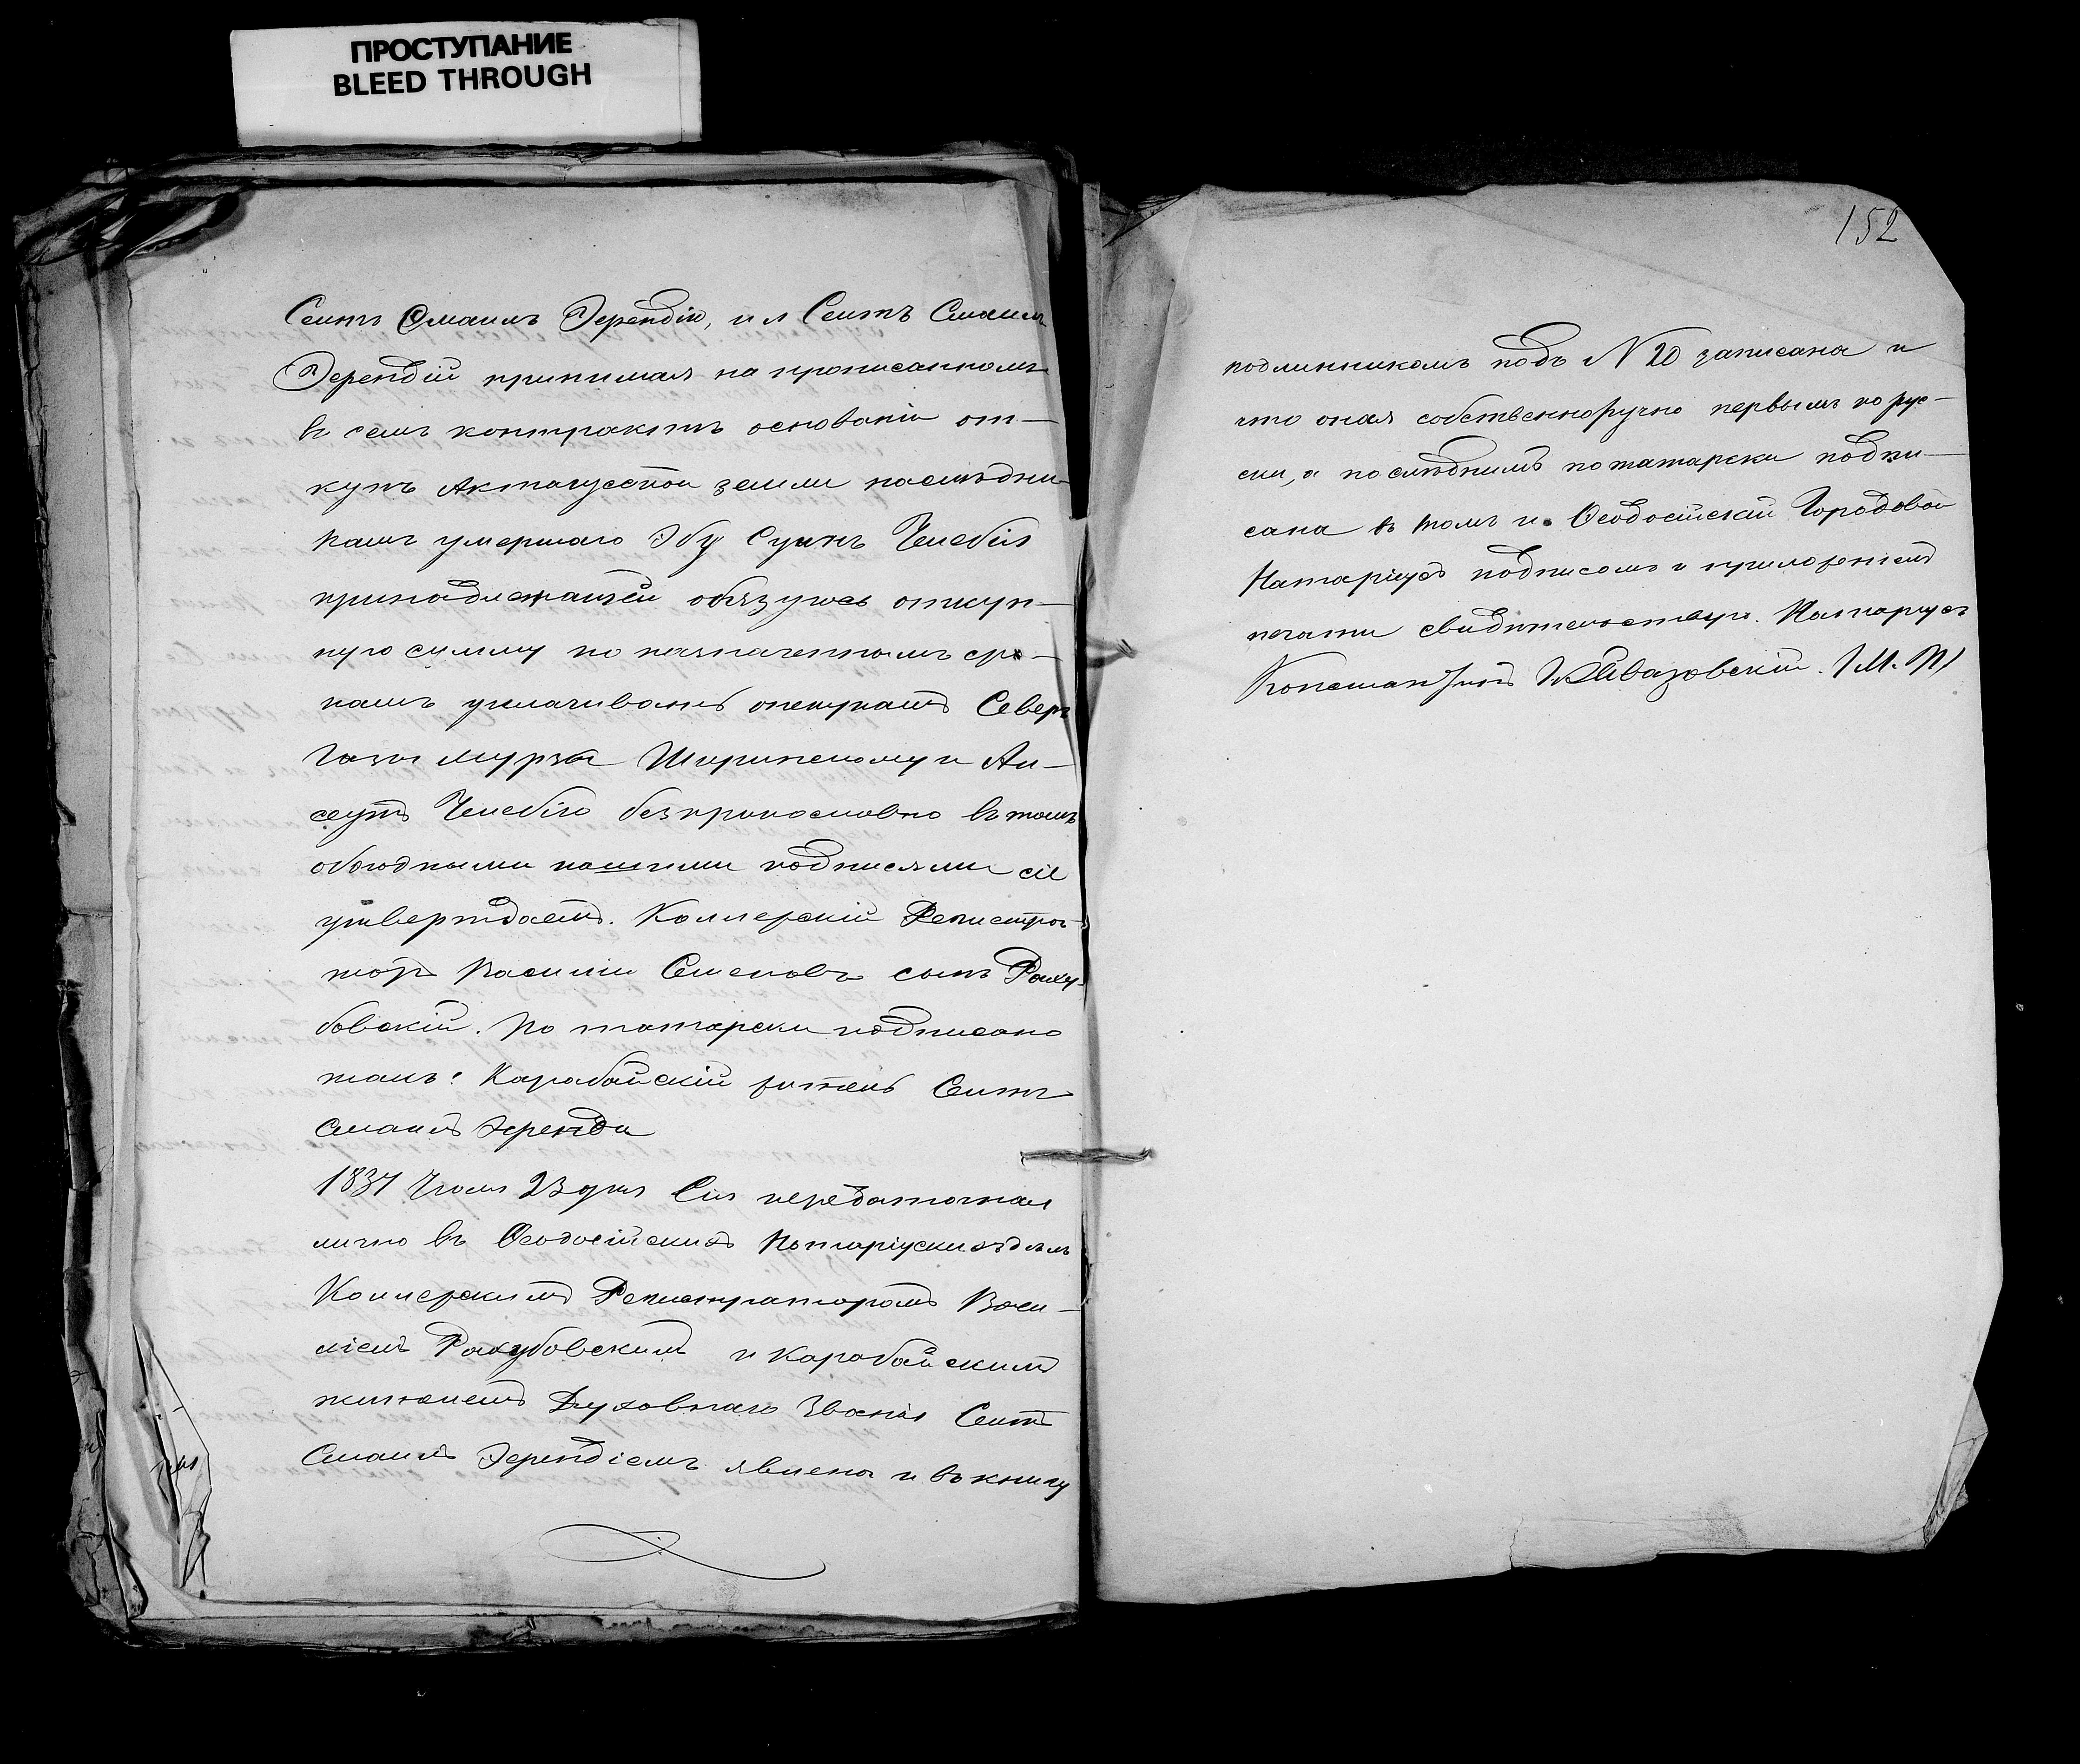 ПРОСТУПАНИЕ
BLEED THROUGH
Сеитъ Смаилъ Эфендію, и я Сеитъ Смаилъ
Эфендій принимая на прописанномъ
въ семъ контрактѣ основаніи от-
купъ Актагусской земли наслѣдни-
камъ умершаго Эбу Суинъ Челебія
принадлежащей обязуюсь откуп-
ную сумму по назначеннымъ сро-
камъ уплачивать опекунамъ Северъ
Газы мурза Ширинскому и Аи-
сеутъ Челебію безпрекословно въ томъ
обоюдными нашими подписями сіе
утверждаемъ. Коллежскій Регистра-
торъ Василій Семеновъ сынъ Раху-
бовскій. По татарски подписано
такъ: Карабайскій житель Сеитъ
Смаилъ Эфенди
1837 Июля 23 дня Сія передаточная
лично въ Ѳеодосійскихъ Нотаріускихъ дѣлъ
Коллежскимъ Регистраторомъ Васи-
ліемъ Рахубовскимъ и Карабайскимъ
жителемъ Духовнаго Званія Сеитъ
Смаилъ Эфендіемъ явлена и въ книгу
152
подлинникомъ подъ N 20 записана и
что оная собственноручно первымъ по рус-
ски, а послѣднимъ по татарски подпи-
сана въ томъ и Ѳеодосійскій Городовой
Натаріусъ подписомъ и приложеніемъ
печати свидѣтельствую. Натаріусъ
Константинъ Айвазовскій. (М. П)